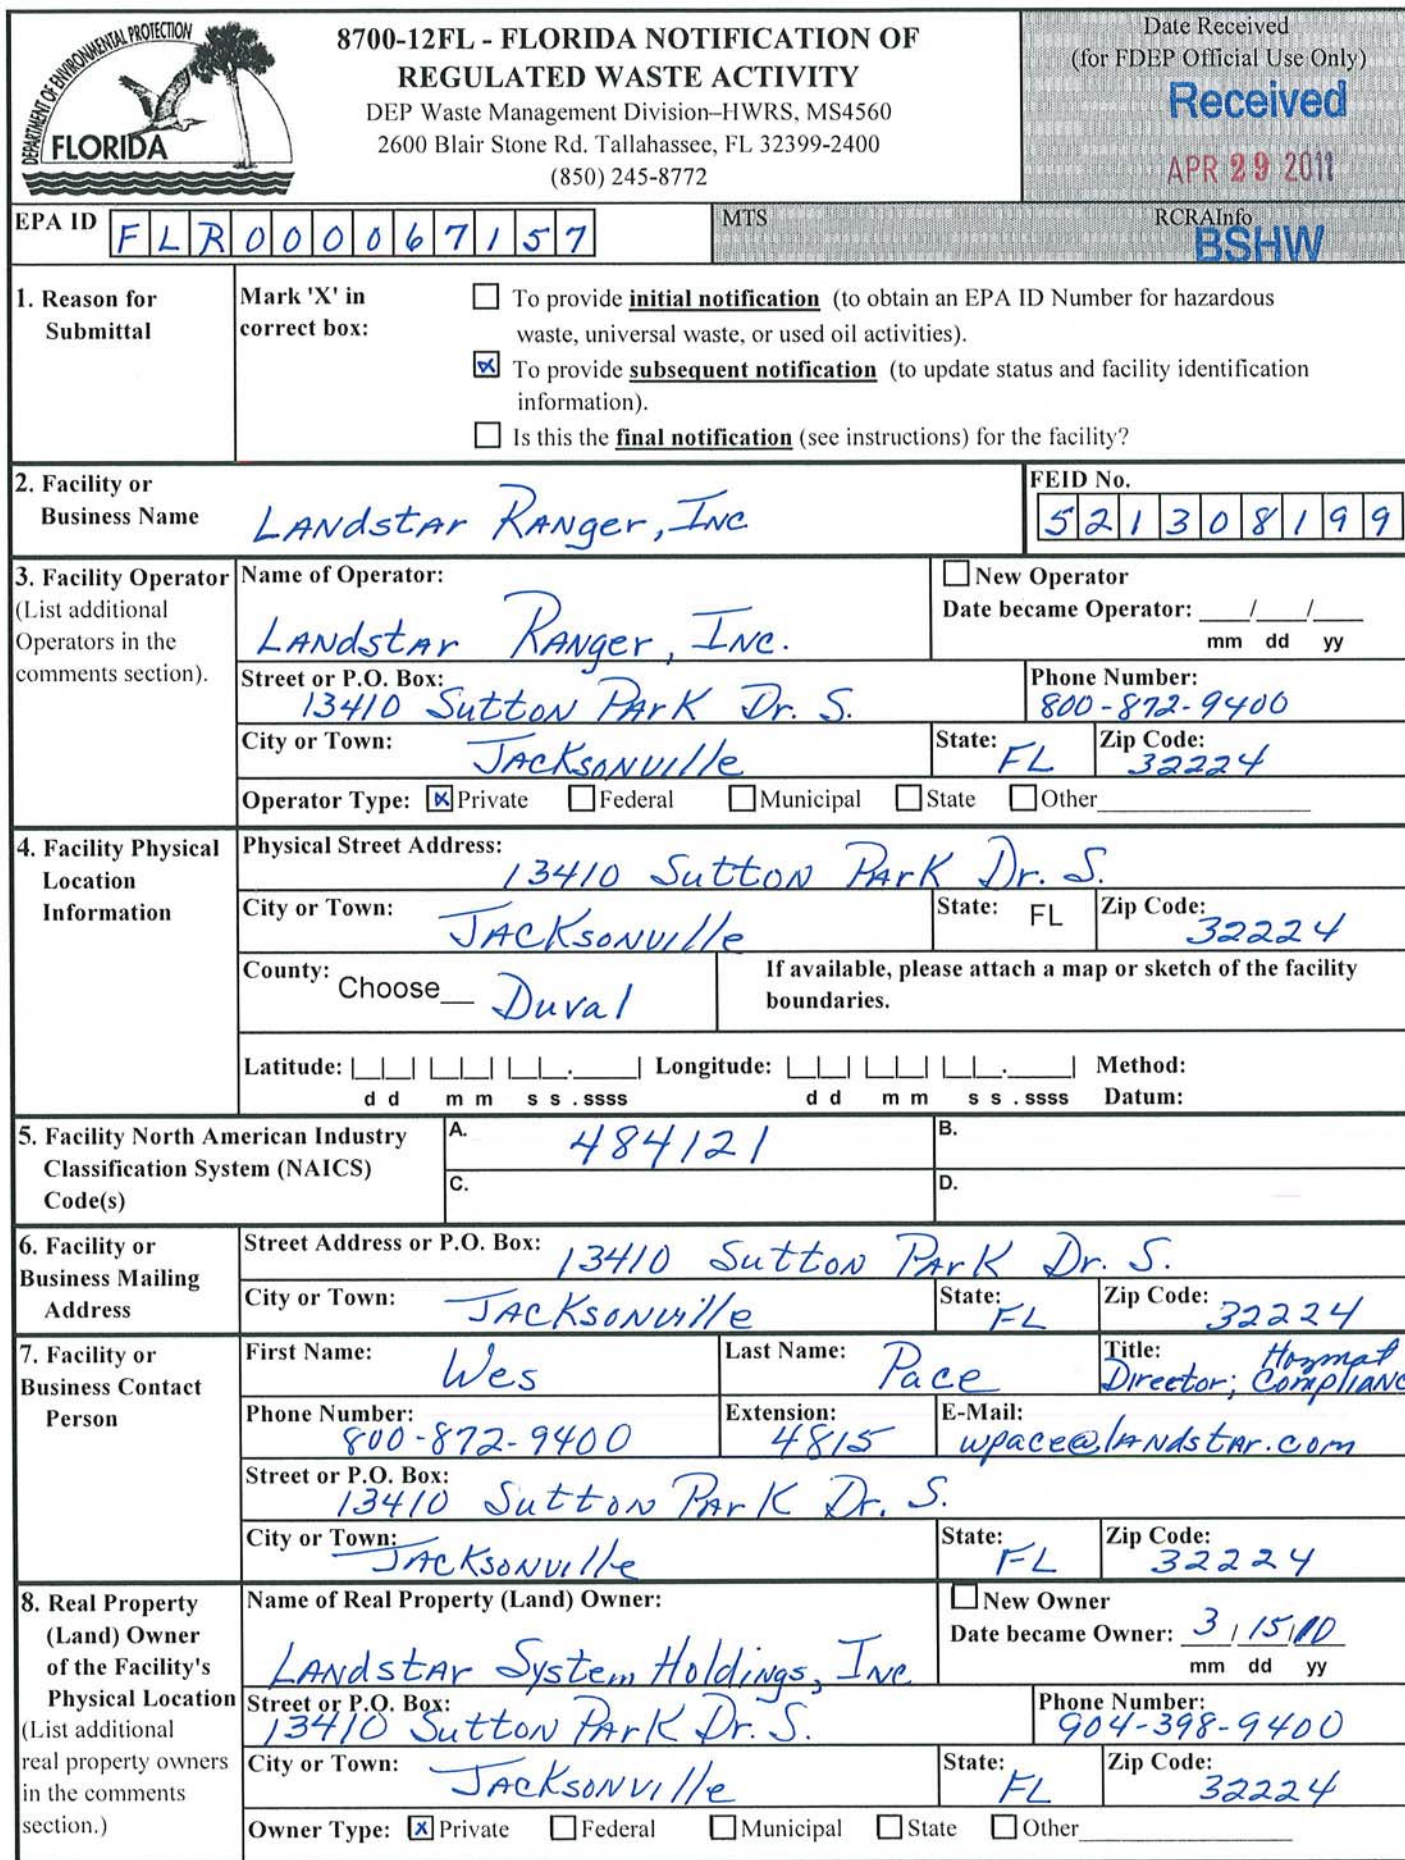 DEPARTMENT OF ENVIRONMENTAL PROTECTION
FLORIDA
8700-12FL - FLORIDA NOTIFICATION OF
REGULATED WASTE ACTIVITY
DEP Waste Management Division–HWRS, MS4560
2600 Blair Stone Rd. Tallahassee, FL 32399-2400
(850) 245-8772
Date Received
(for FDEP Official Use Only)
Received
APR 29 2011
EPA ID FLR000067157
MTS
RCRAInfo
BSHW
1. Reason for
Submittal
Mark 'X' in
correct box:
To provide initial notification (to obtain an EPA ID Number for hazardous
waste, universal waste, or used oil activities).
X To provide subsequent notification (to update status and facility identification
information).
Is this the final notification (see instructions) for the facility?
2. Facility or
Business Name
LANdstAr RANger, INC
FEID No.
521308199
3. Facility Operator
(List additional
Operators in the
comments section).
Name of Operator:
LANdstAr RANger, INC.
New Operator
Date became Operator: ___/___/___
mm dd yy
Street or P.O. Box:
13410 SuttoN PArK Dr. S.
Phone Number:
800-872-9400
City or Town: JACKsoNville
State: FL
Zip Code: 32224
Operator Type: X Private Federal Municipal State Other
4. Facility Physical
Location
Information
Physical Street Address:
13410 SuttoN PArK Dr. S.
City or Town: JACKsoNville
State: FL
Zip Code: 32224
County: Choose__ Duval
If available, please attach a map or sketch of the facility
boundaries.
Latitude: Longitude: Method:
d d m m s s . ssss d d m m s s . ssss Datum:
5. Facility North American Industry
Classification System (NAICS)
Code(s)
A. 484121
B.
C.
D.
6. Facility or
Business Mailing
Address
Street Address or P.O. Box: 13410 SuttoN PArK Dr. S.
City or Town: JACKsoNville
State: FL
Zip Code: 32224
7. Facility or
Business Contact
Person
First Name: Wes
Last Name: Pace
Title: Hazmat
Director; COmpliANC
Phone Number:
800-872-9400
Extension:
4815
E-Mail:
wpace@lANdstAr.com
Street or P.O. Box:
13410 SuttoN PArK Dr. S.
City or Town: JACKsoNville
State: FL
Zip Code: 32224
8. Real Property
(Land) Owner
of the Facility's
Physical Location
(List additional
real property owners
in the comments
section.)
Name of Real Property (Land) Owner:
LANdstAr System Holdings, INC.
New Owner
Date became Owner: 3/15/10
mm dd yy
Street or P.O. Box:
13410 SuttoN PArK Dr. S.
Phone Number:
904-398-9400
City or Town: JACKsoNville
State: FL
Zip Code: 32224
Owner Type: X Private Federal Municipal State Other